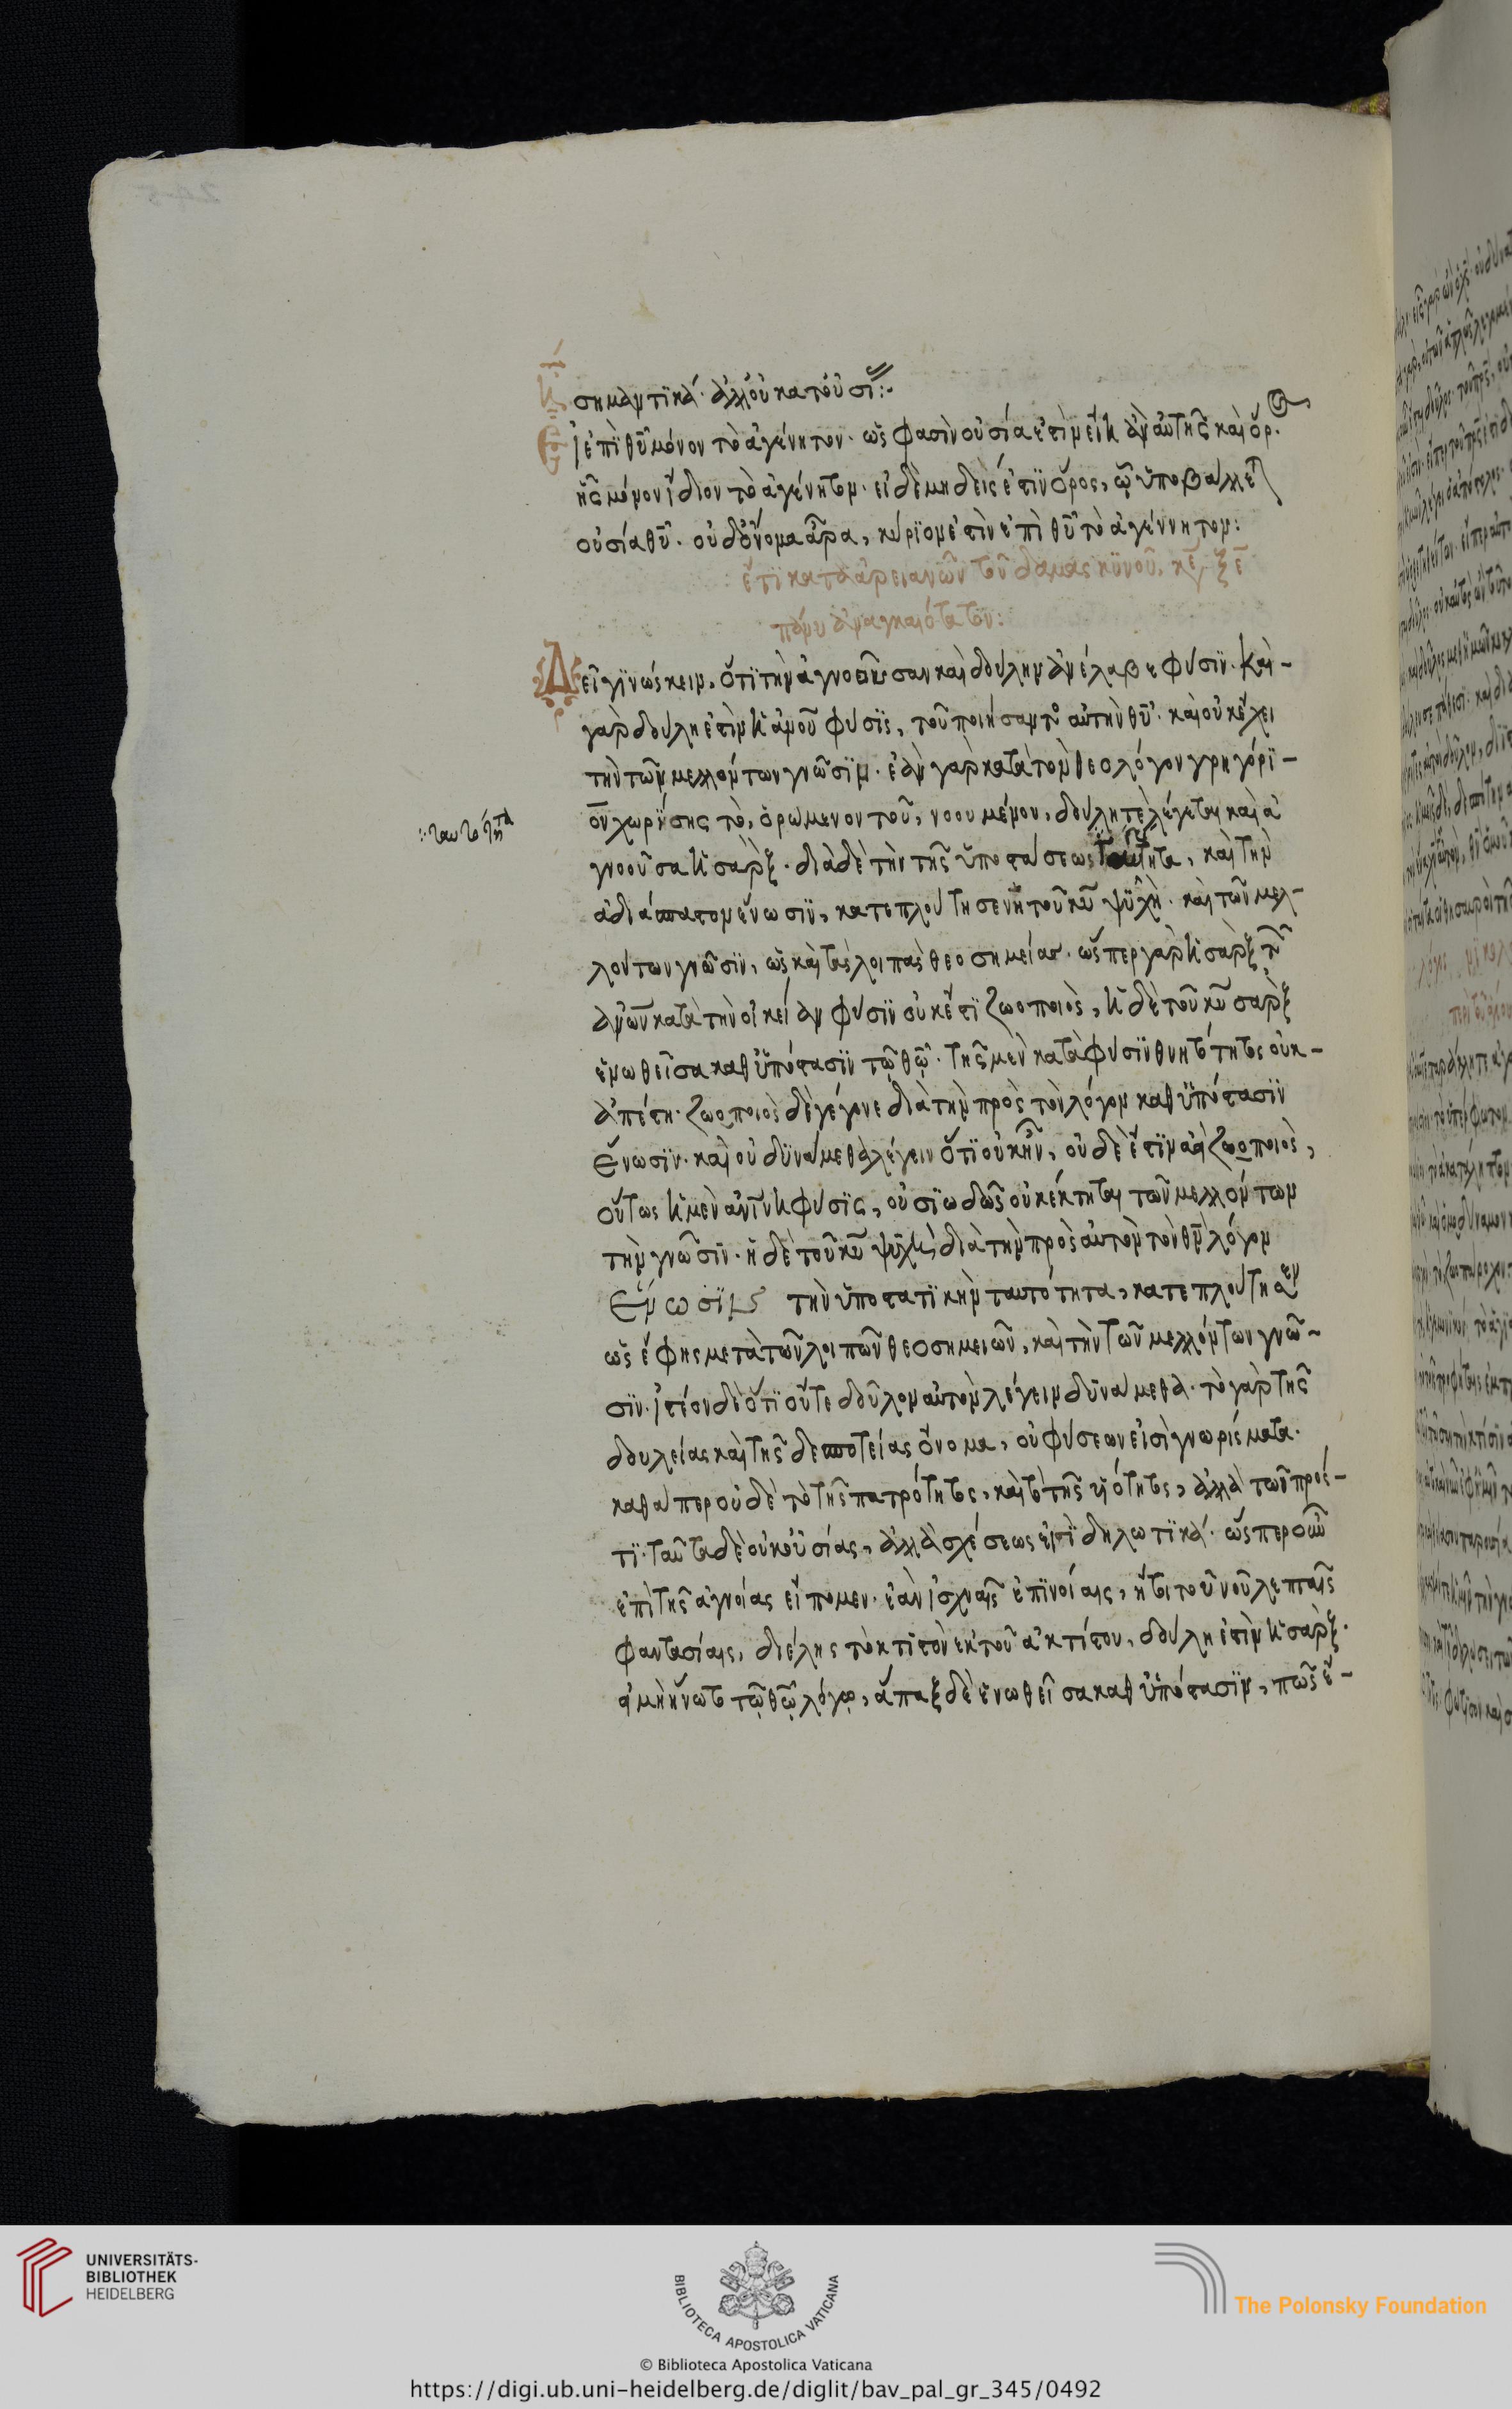 σημαντϊκὰ· ἀλλ' οὐκατούσί
εἰ ἐπὶ θῡ μόνον τὸ ἀγένητον· ὡς φασὶν οὐσία ἐστὶν εἴη ἂν αὐτῆς καὶ ὅρ.
ῆς μόνον ἴδιον τὸ ἀγένητον· εἰ δὲ μηδεὶς ἐστὶν ὅρος, ᾧ ὑποβαλλε
οὐσία θῡ· οὐδ' ὄνομα ἄρα, κύριον ἐστὶν ἐπὶ θῡ τὸ ἀγέννητον:
ἔτϊ κατὰ ἀρειανῶν τοῦ δαμασκϊνοῦ, κε ξε
πάνυ ἀναγκαιότατον:
Δεῖ γϊνώσκειν, ὅτϊ τὴν ἀγνοοῦσαν καὶ δούλην ἀνέλαβε φύσϊν· Καὶ-
γὰρ δούλη ἐστὶν ἡ ἀνοῦ φύσϊς, τοῦ ποιήσαντο αὐτὴν θῡ· καὶ οὐκ ἔχει
τὴν τῶν μελλόντων γνῶσϊν· ἐὰν γὰρ κατὰ τὸν θεολόγον γρηγόρϊ-
ον χωρήσης τὸ, ὁρώμενον τοῦ, νοουμένου, δούλη τὲ λέγεται καὶ ἀ
:ταυτότητα
γνοοῦσα ἡ σὰρξ· διὰ δὲ τὴν τῆς ὑποστάσεως ταυτότητα, καὶ τὴν
ἀδιάσπαστον ἕνωσϊν, κατεπλούτησεν ἡ τοῦ κῡ ψϋχὴ· καὶ τῶν μελ-
λόντων γνῶσϊν, ὡς καὶ τὰς λοιπὰς θεοσημείας· ὥσπερ γὰρ ἡ σὰρξ τῶν
ἀνῶν κατὰ τὴν οἰκείαν φύσϊν οὐκ ἔστϊ ζωοποιὸς, ἡ δὲ τοῦ κῡ σὰρξ
ἑνωθεῖσα καθ' ὑπόστασϊν τῷ θῷ· τῆς μὲν κατὰ φύσϊν θνητότητος οὐκ-
ἀπέστη· ζωοποιὸς δὲ γέγονε διὰ τὴν πρὸς τὸν λόγον καθ' ὑπόστασϊν
ἕνωσϊν· καὶ οὐ δϋνάμεθα λέγειν ὅτϊ οὐκ ἦν, οὐδὲ ἔστϊν ἀεὶ ζωοποιὸς,
οὕτως ἡ μὲν ἀνΐνη φύσϊς, οὐσϊωδῶς οὐ κέκτηται τῶν μελλόντων
τὴν γνῶσϊν· ἡ δὲ τοῦ κῡ ψϋχὴ διὰ τὴν πρὸς αὐτὸν τὸν θν̄ λόγον
ἕνωσϊν τὴν ὑποστατϊκὴν ταυτότητα, κατεπλούτησεν
ὡς ἔφης μετὰ τῶν λοιπῶν θεοσημειῶν, καὶ τὴν τῶν μελλόντων γνῶ-
σϊν· ἰστέον δὲ ὅτϊ οὔτε δοῦλον αὐτὸν λέγειν δϋνάμεθα· τὸ γὰρ τῆς
δουλείας καὶ τῆς δεσποτείας ὄνομα, οὐ φύσεων εἰσὶ γνωρίσματα·
καθάπερ οὐδὲ τὸ τῆς πατρότητος, καὶ τὸ τῆς υἱότητος, ἀλλὰ τῶν πρός-
τϊ· ταῦτα δὲ οὐκ οὐσίας, ἀλλὰ σχέσεως εἰσὶ δηλωτϊκά· ὥσπερ οὖν
ἐπὶ τῆς ἀγνοίας εἴπομεν· ἐὰν ἰσχναῖς ἐπϊνοίαις, ἤτοι τοῦ νοῦ λεπταῖς
φαντασίαις, διέλης τὸ κτϊστὸν ἐκ τοῦ ἀκτίστου, δούλη ἐστὶν ἡ σὰρξ·
εἰ μὴ ἥνωτο τῷ θῷ λόγῳ, ἅπαξ δὲ ἑνωθεῖσα καθ' ὑπόστασϊν, πῶς ἔ-
UNIVERSITÄTS-
BIBLIOTHEK
HEIDELBERG
BIBLIOTECA APOSTOLICA VATICANA
The Polonsky Foundation
© Biblioteca Apostolica Vaticana
https://digi.ub.uni-heidelberg.de/diglit/bav_pal_gr_345/0492